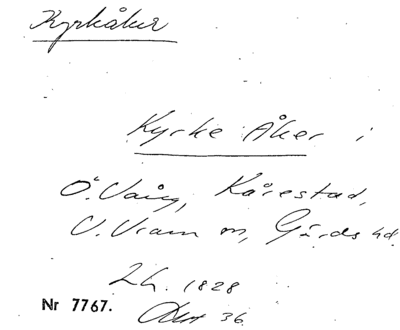 Kyrkåker
Kyrke Åker i
Ö. Vång, Kårestad,
V. Vram m, Gärds hd.
Lh. 1828
Nr 7767.
36